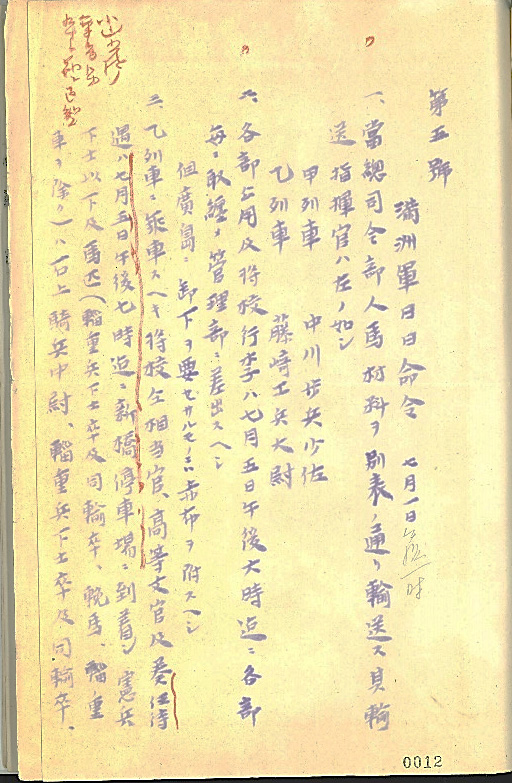 第五號
滿洲軍日日命令 七月一日
一、當總司令部人馬材料ヲ別表ノ通リ輸送ス其輸
送指揮官ハ左ノ如シ
甲列車 中川步兵少佐
乙列車 藤崎工兵大尉
各部公用及將校行李ハ七月五日午後六時迄ニ各部
每ニ取纏メ管理部ニ差出スヘシ
但廣島ニ卸下ヲ要セサルモノニハ赤布ヲ附スヘシ
乙列車ニ乘車スヘキ將校仝相當官、高等文官及奏任待
遇ハ七月五日午後七時迄ニ新橋停車場ニ到着シ憲兵
下士以下及馬匹(輜重兵下士卒及同輸卒、輓馬、輜重
車ヲ除ク)ハ右上騎兵中尉、輜重兵下士卒及同輸卒、
0012